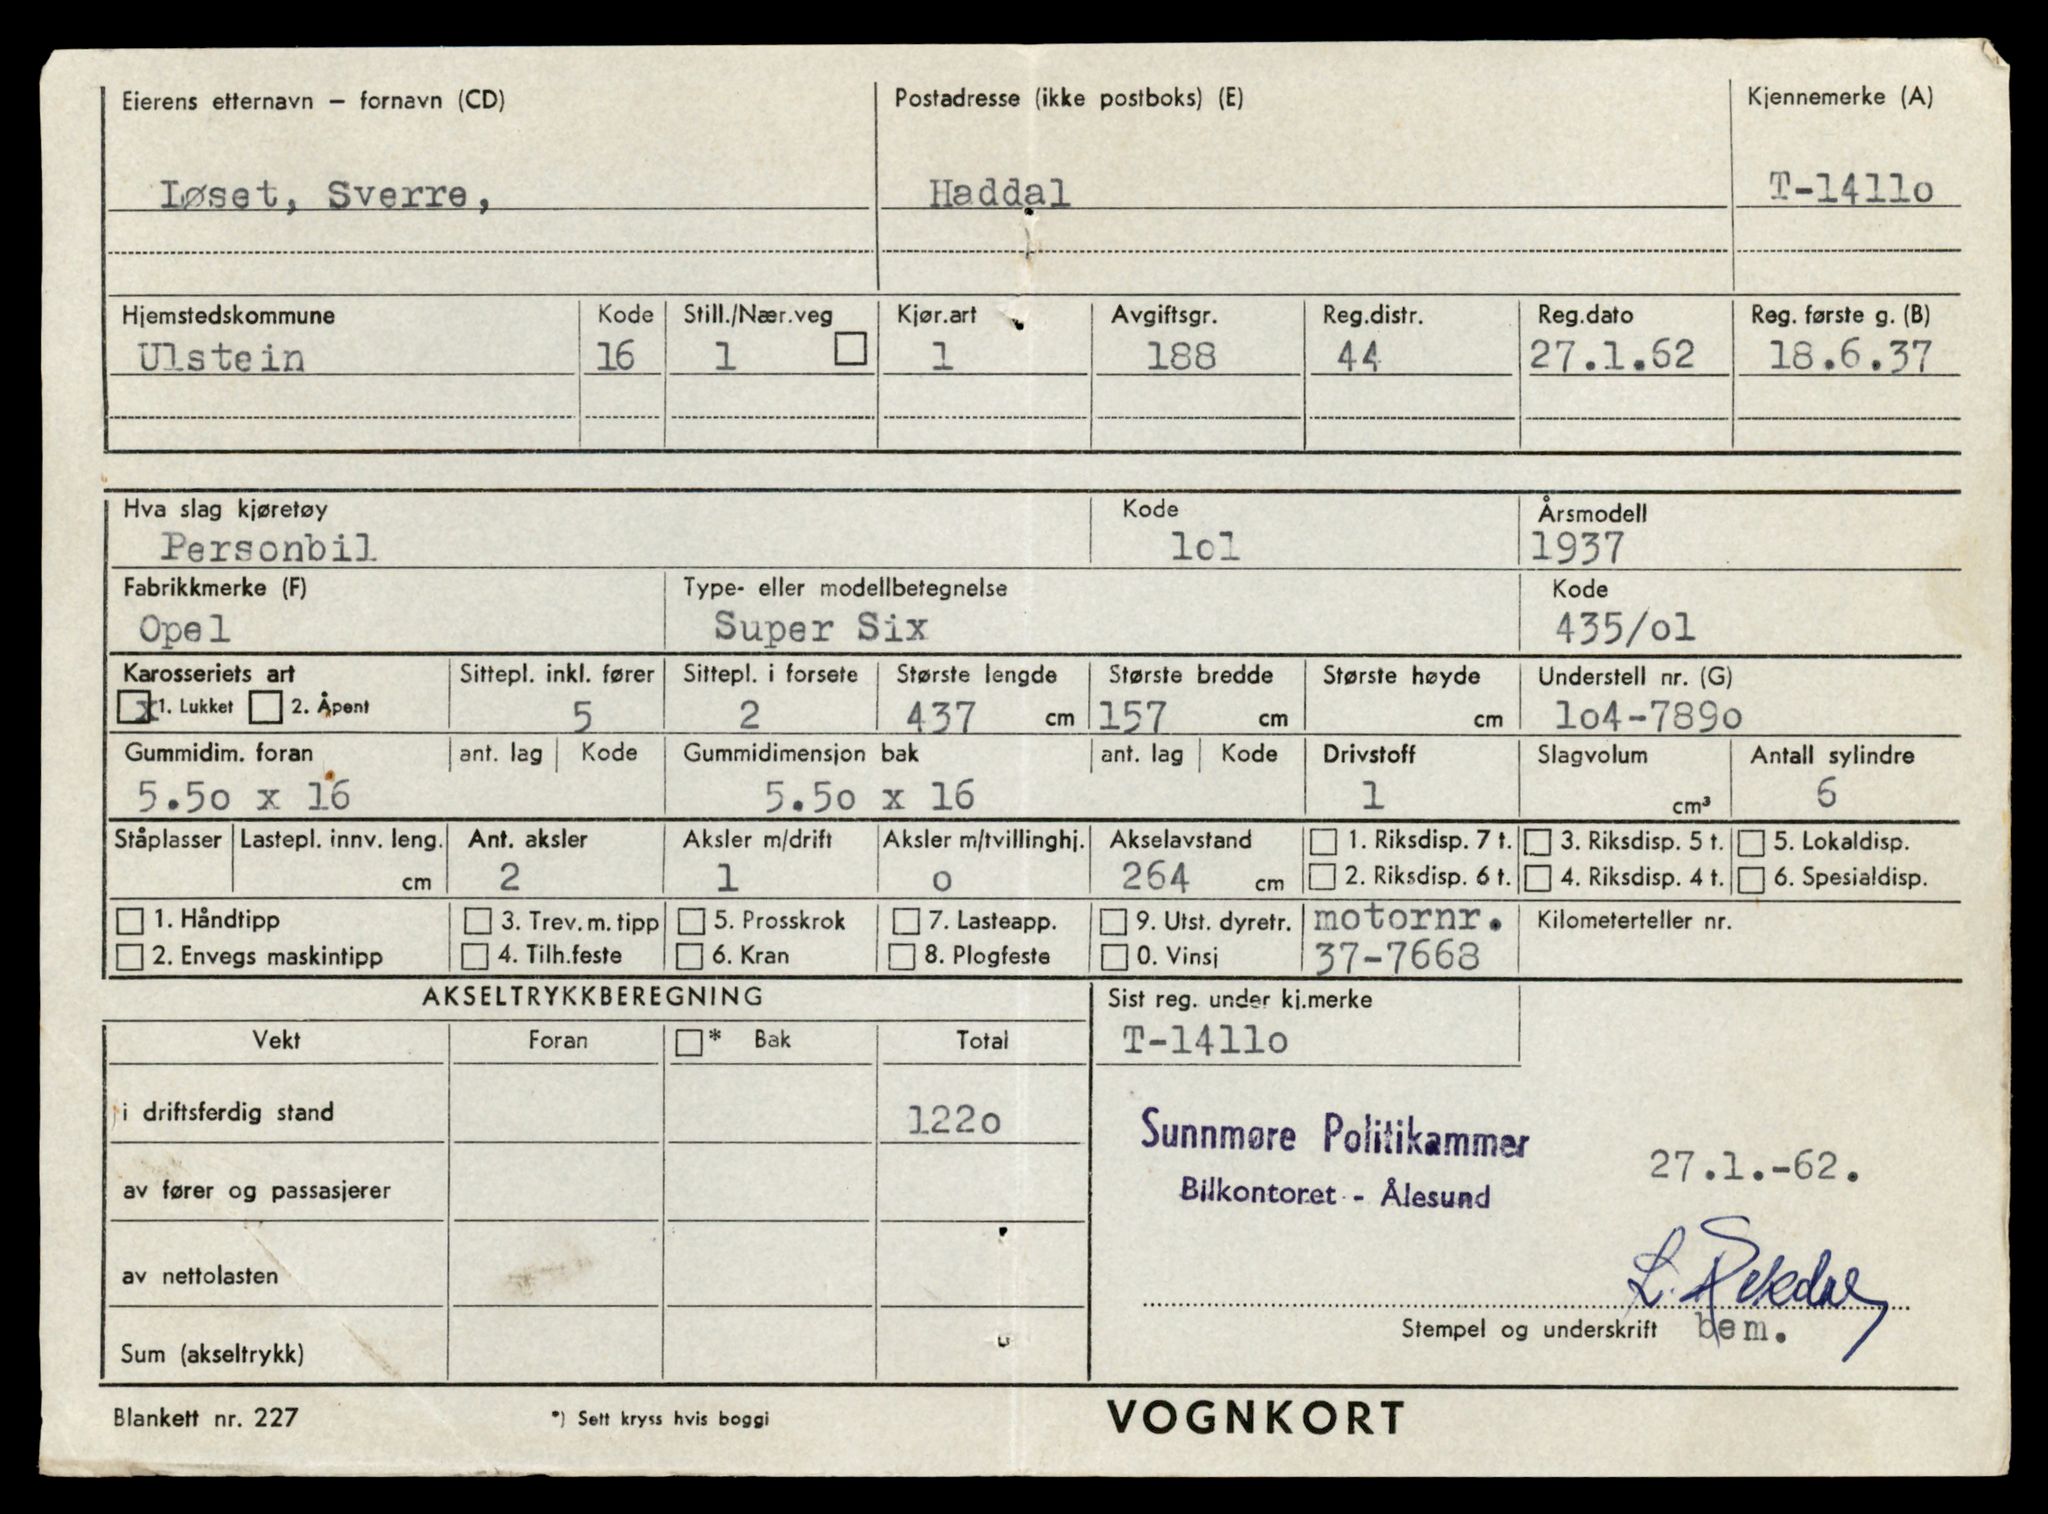 Eierens etternavn – fornavn (CD) Postadresse (ikke postboks) (E) Kjennemerke (A)
Løset, Sverre, Haddal T-1411o
Hjemstedskommune Kode Still./Nær.veg Kjør.art Avgiftsgr. Reg.distr. Reg.dato Reg. første g. (B)
Ulstein 16 1 1 188 44 27.1.62 18.6.37
Hva slag kjøretøy Kode Årsmodell
Personbil lol 1937
Fabrikkmerke (F) Type- eller modellbetegnelse Kode
Opel Super Six 435/ol
Karosseriets art Sittepl. inkl. fører Sittepl. i forsete Største lengde Største bredde Største høyde Understell nr. (G)
x 1. Lukket 2. Åpent 5 2 437 cm 157 cm cm 1o4-789o
Gummidim. foran ant. lag Kode Gummidimensjon bak ant. lag Kode Drivstoff Slagvolum Antall sylindre
5.5o x 16 5.5o x 16 1 cm³ 6
Ståplasser Lastepl. innv. leng. Ant. aksler Aksler m/drift Aksler m/tvillinghj. Akselavstand 1. Riksdisp. 7 t. 3. Riksdisp. 5 t. 5. Lokaldisp.
cm 2 1 o 264 cm 2. Riksdisp. 6 t. 4. Riksdisp. 4 t. 6. Spesialdisp.
1. Håndtipp 3. Trev. m. tipp 5. Prosskrok 7. Lasteapp. 9. Utst. dyretr. motornr. Kilometerteller nr.
2. Envegs maskintipp 4. Tilh.feste 6. Kran 8. Plogfeste 0. Vinsj 37-7668
AKSELTRYKKBEREGNING Sist reg. under kj.merke
Vekt Foran * Bak Total T-1411o
i driftsferdig stand 122o
Sunnmøre Politikammer
27.1.-62.
av fører og passasjerer
Bilkontoret - Ålesund
av nettolasten
Stempel og underskrift bem.
Sum (akseltrykk)
Blankett nr. 227 *) Sett kryss hvis boggi VOGNKORT